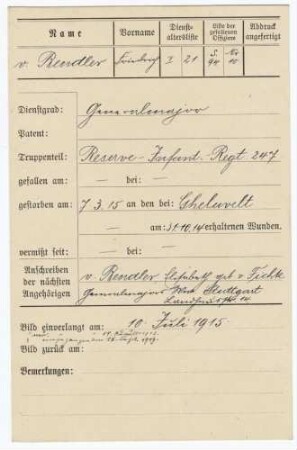 Name Vorname Dienst-altersliste Liste der gefallenen Offiziere Abdruck angefertigt
v. Bendler Friedrich I 21 S. 94 Nr 10
Dienstgrad: Generalmajor
Patent:
Truppenteil: Reserve-Infant.-Regt 247
gefallen am: — bei: —
gestorben am: 7.3.15 an den bei: Gheluvelt
am: 31.10.14 erhaltenen Wunden.
vermißt seit: — bei: —
Anschreiben v. Bendler, Elisabeth geb v
der nächsten Generalmajors Stuttgart
Angehörigen
Bild einverlangt am: 10. Juli 1915
Bild zurück am:
Bemerkungen: